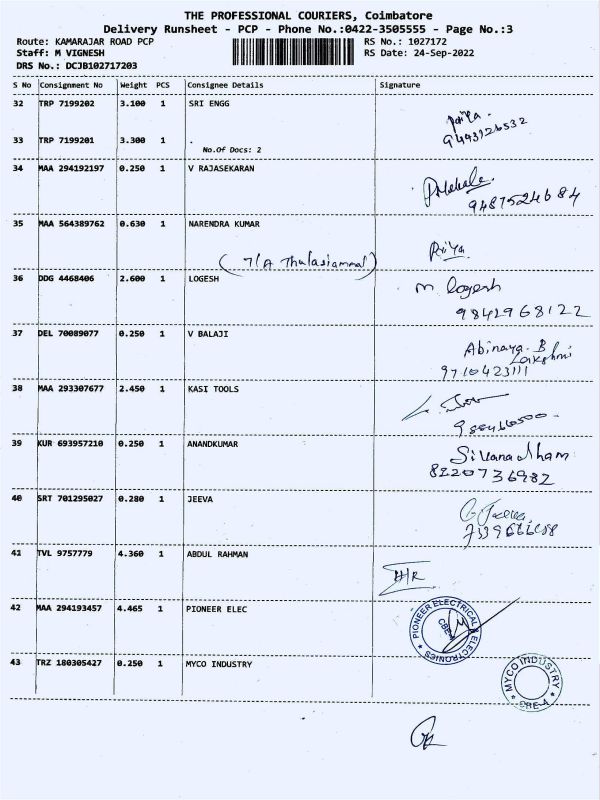 THE PROFESSIONAL COURIERS, Coimbatore
Delivery Runsheet - PCP - Phone No.:0422-3505555 - Page No.:3
Route: KAMARAJAR ROAD PCP
RS No.: 1027172
Staff: M VIGNESH
RS Date: 24-Sep-2022
DRS No.: DCJB102717203
S No Consignment No Weight PCS Consignee Details Signature
32 TRP 7199202 3.100 1 SRI ENGG
Priya.
9443126532
33 TRP 7199201 3.300 1 .
No.Of Docs: 2
34 MAA 294192197 0.250 1 V RAJASEKARAN
9487524684
35 MAA 564389762 0.630 1 NARENDRA KUMAR
Priya
(7/A Thulasiammal)
36 DDG 4468406 2.600 1 LOGESH
M. Logesh
9842968122
37 DEL 70089077 0.250 1 V BALAJI
Abinaya. B
Lakshmi
9710423111
38 MAA 293307677 2.450 1 KASI TOOLS
39 KUR 693957210 0.250 1 ANANDKUMAR
8220736982
40 SRT 701295027 0.280 1 JEEVA
G. Jeeva
41 TVL 9757779 4.360 1 ABDUL RAHMAN
42 MAA 294193457 4.465 1 PIONEER ELEC
PIONEER ELECTRICAL & ELECTRONICS
CBE-
43 TRZ 180305427 0.250 1 MYCO INDUSTRY
MYCO INDUSTRY
CBE-4